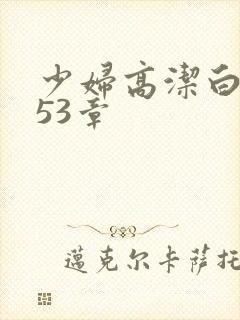 少婦高潔白
53章
邁克尔卡萨托